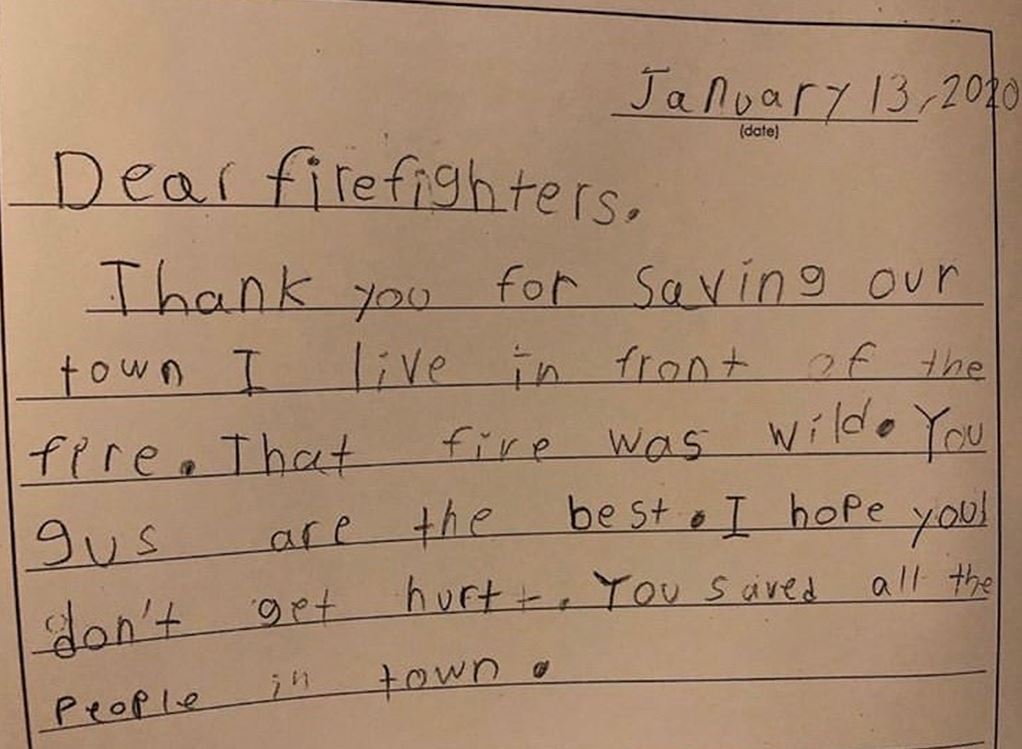 January 13, 2020
(date)
Dear firefighters.
Thank you for saving our
town I live in front of the
fire. That fire was wild. You
gus are the best. I hope you
don't get hurt. You saved all the
people in town.